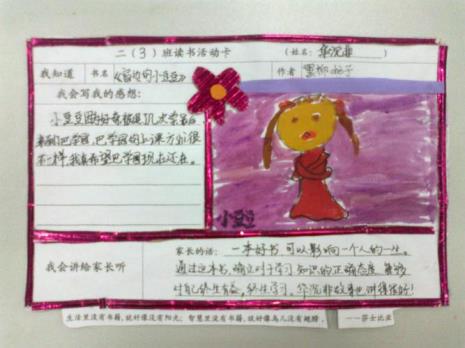 二（3）班读书活动卡 （姓名：华沉非）
我知道 书名 《窗边的小豆豆》 作者 黑柳彻子
我会写我的感想：
小豆豆因好奇被退几次学后
来到巴学园，巴学园的上课方式很
不一样，我真希望巴学园现在还在。
小豆豆
我会讲给家长听
家长的话：一本好书，可以影响一个人的一生。
通过这本书，确立对于学习、知识的正确态度，能够
对自己终生有益，终生学习。华沉非故事也讲得很好！
生活里没有书籍，就好像没有阳光；智慧里没有书籍，就好像鸟儿没有翅膀。 ——莎士比亚